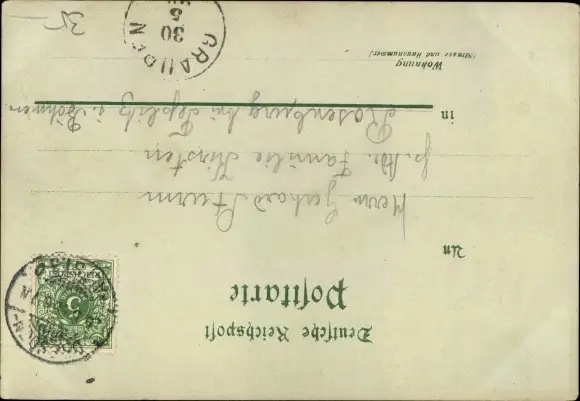 Deutsche Reichspost
Postkarte
An
Herrn Gerhard Sturm
p. Adr. Familie Kirsten
in Rosenburg bei Teplitz i. Böhmen
Wohnung
(Strasse und Hausnummer)
GRAUPEN
30
5
35